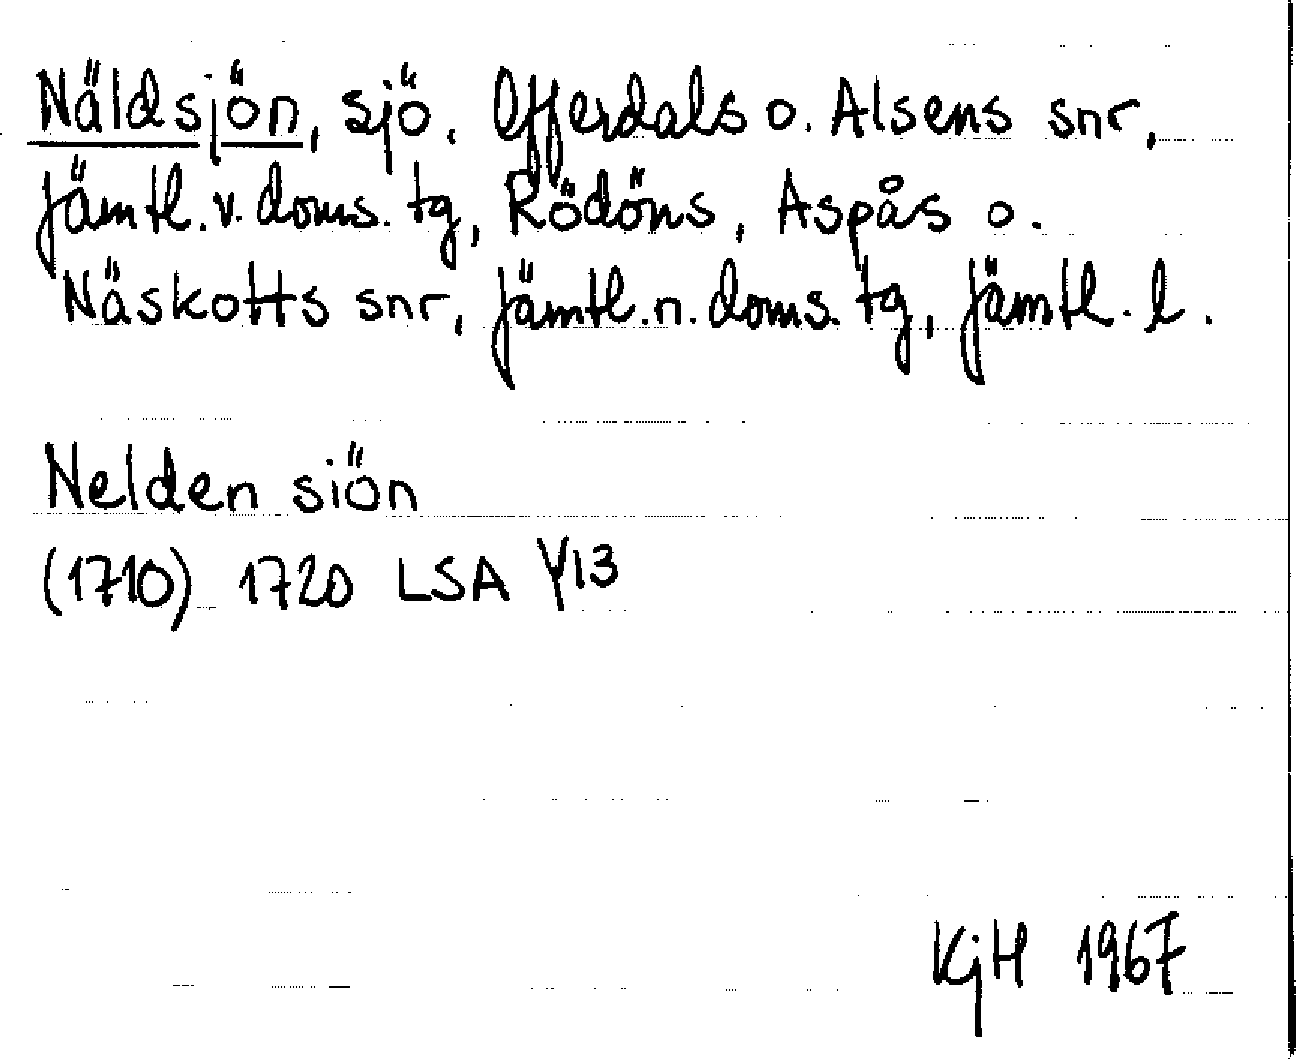 Näldsjön, sjö. Offerdals o. Alsens snr,
Jämtl. v. doms. tg, Rödöns, Aspås o.
Näskotts snr, Jämtl. n. doms. tg, Jämtl. l.
Nelden siön
(1710) 1720 LSA Y13
KjH 1967